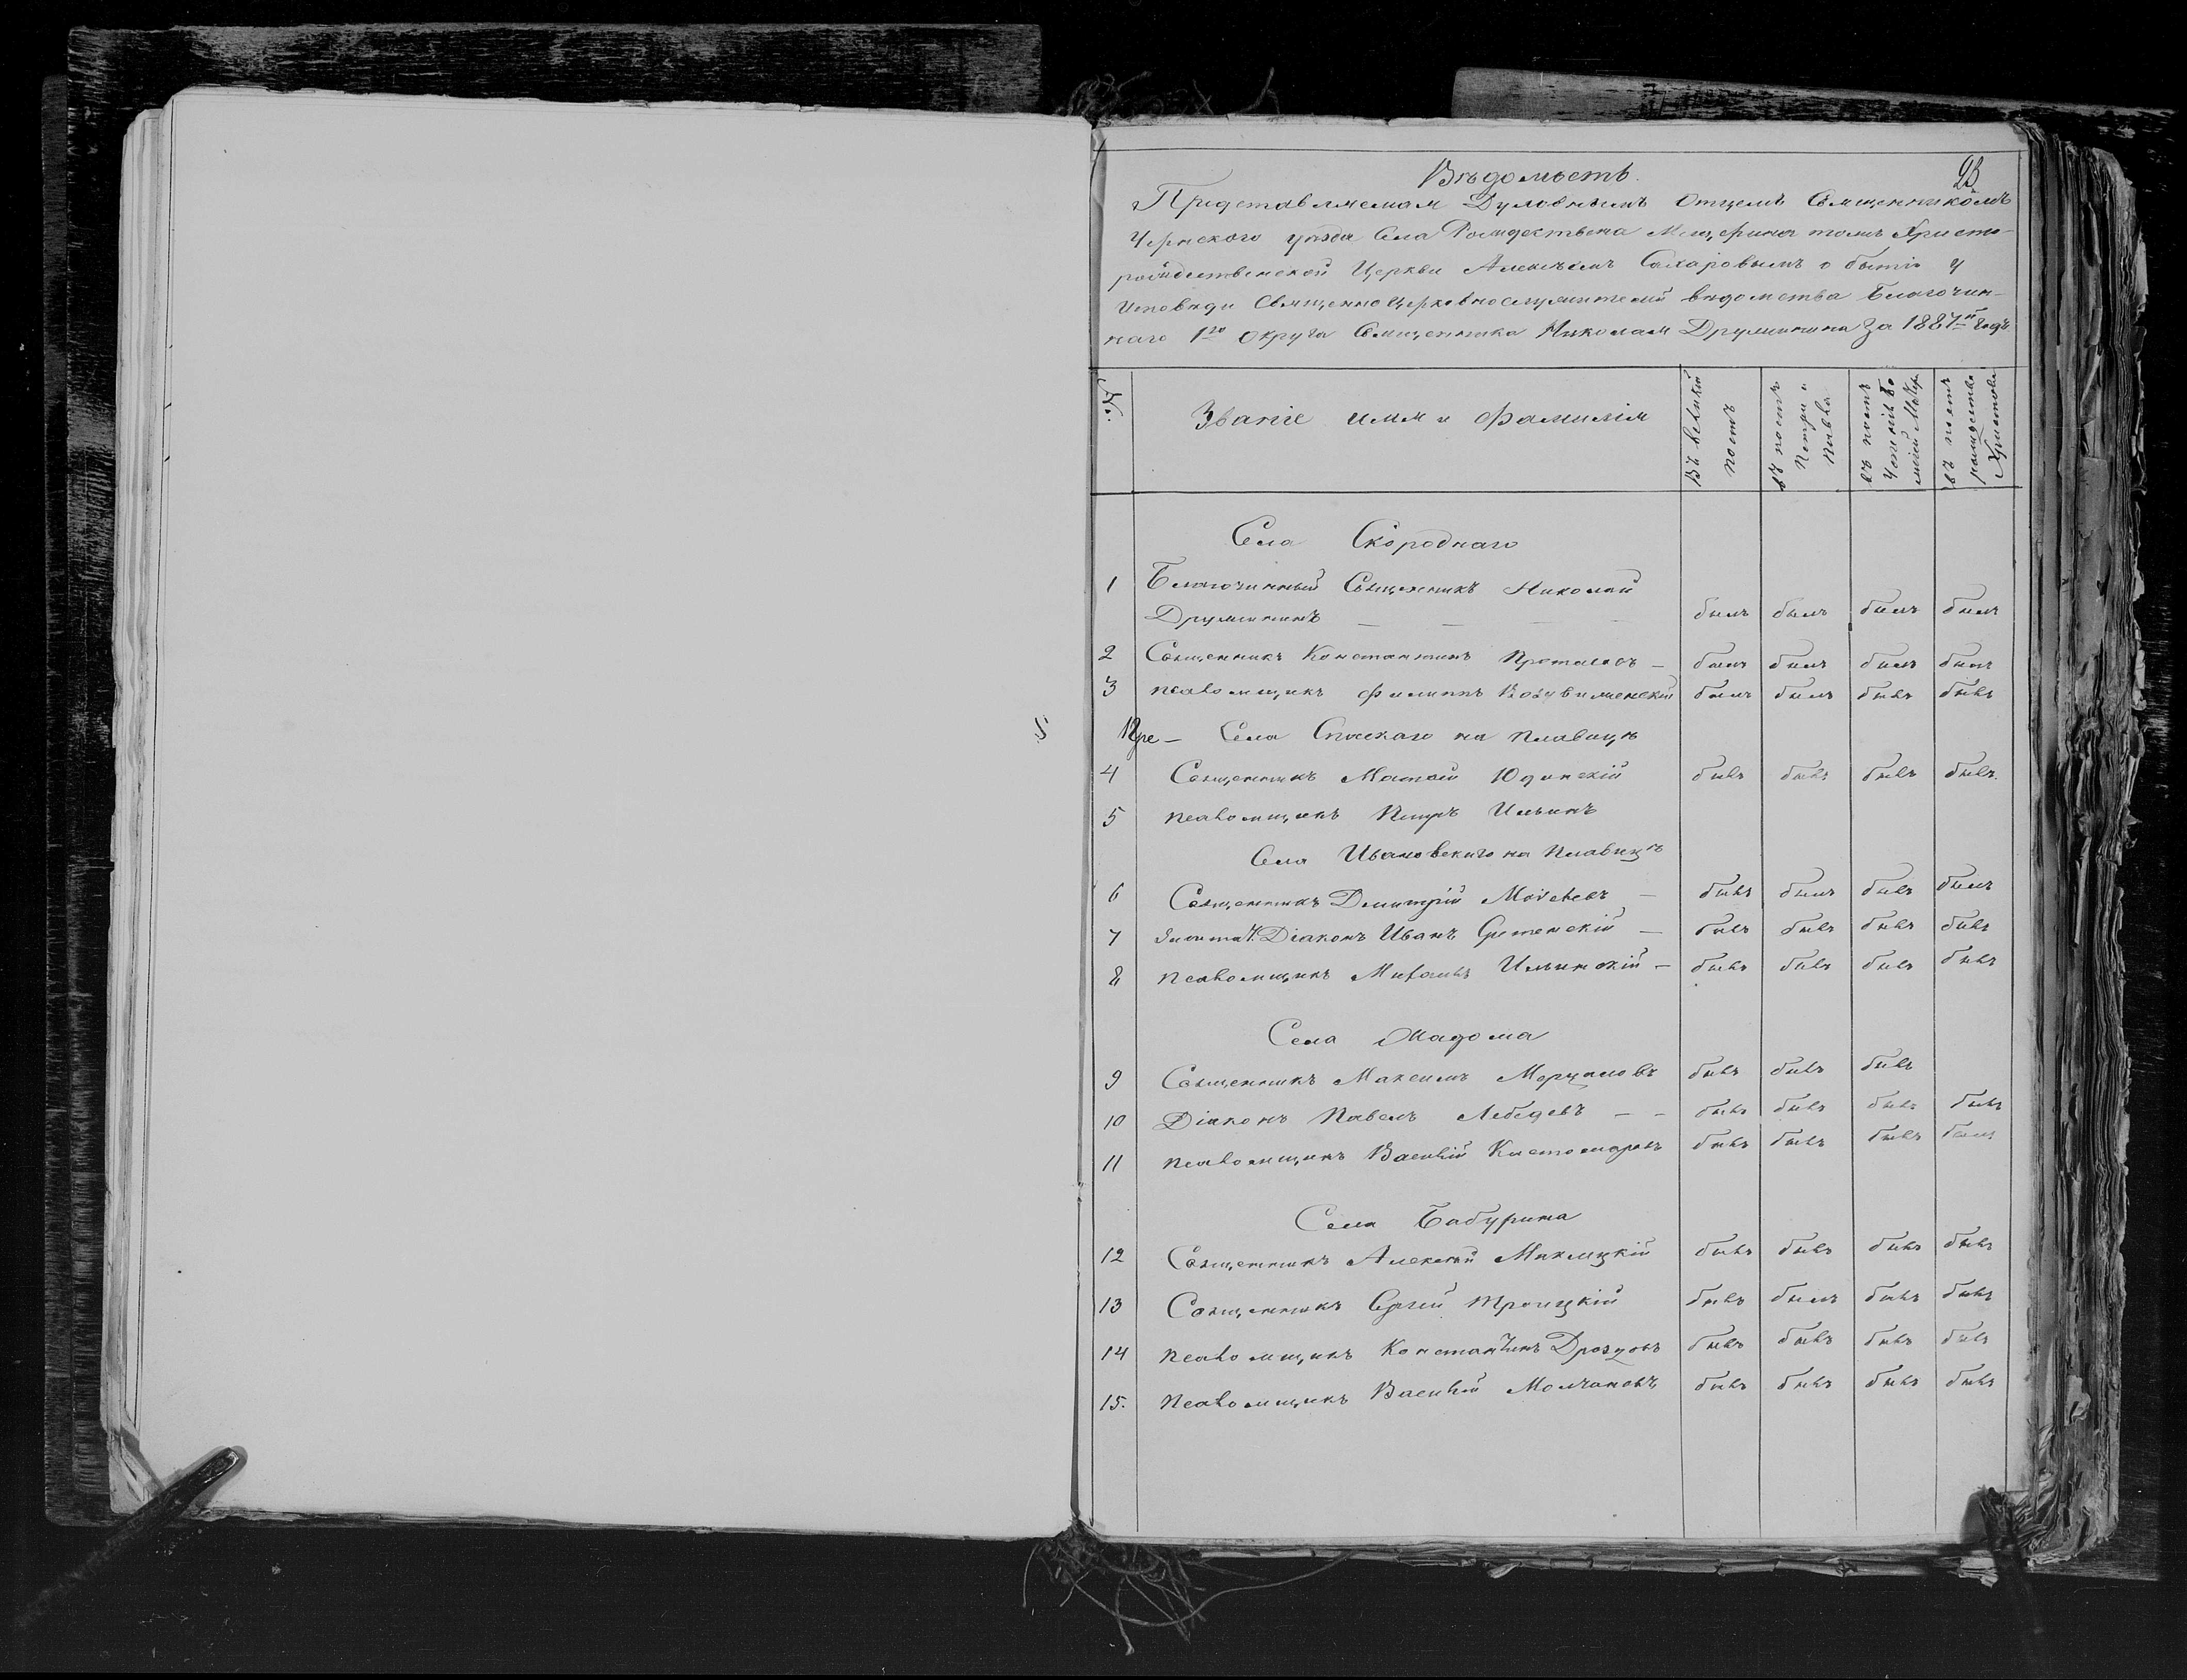 23
Вѣдомость
Представляемая Духовнымъ Отцемъ Священникомъ
Чернскаго уѣзда Села Рождествена Мещерина тожъ Христо-
рождественской Церкви Алексѣемъ Сахаровымъ о бытіи у
исповѣди Священноцерковнослужителей вѣдомства Благочин-
наго 1го округа Священника Николая Дружинина за 1887й годъ
№
Званіе имя и фамилія
Въ великій постъ
въ постъ Петра и Павла
въ постъ Успенія Божіей Матер.
въ постъ рождества Христова
Села Скороднаго
1 Благочинный Священникъ Николай
Дружининъ — — — — былъ былъ былъ былъ
2 Священникъ Константинъ Протасовъ — былъ былъ былъ былъ
3 псаломщикъ Филиппъ Воздвиженскій былъ былъ былъ былъ
Села Спасскаго на Плавицѣ
4 Священникъ Матѳей Юдинскій былъ былъ былъ былъ
5 псаломщикъ Петръ Ильинъ
Села Ивановскаго на Плавицѣ
6 Священникъ Димитрій Моѵсеевъ — былъ былъ былъ былъ
7 Діаконъ Иванъ Сретенскій — былъ былъ былъ былъ
8 псаломщикъ Михаилъ Ильинскій — былъ былъ былъ былъ
Села Жадома
9 Священникъ Максимъ Мерцаловъ былъ былъ былъ
10 Діаконъ Павелъ Лебедевъ — — былъ былъ былъ былъ
11 псаломщикъ Василій Костомаровъ былъ былъ былъ былъ
Села Бабурина
12 Священникъ Алексѣй былъ былъ былъ былъ
13 Священникъ Сергій Троицкій былъ былъ былъ былъ
14 псаломщикъ Константинъ Дроздовъ былъ былъ былъ былъ
15. псаломщикъ Василій Молчановъ былъ былъ былъ былъ